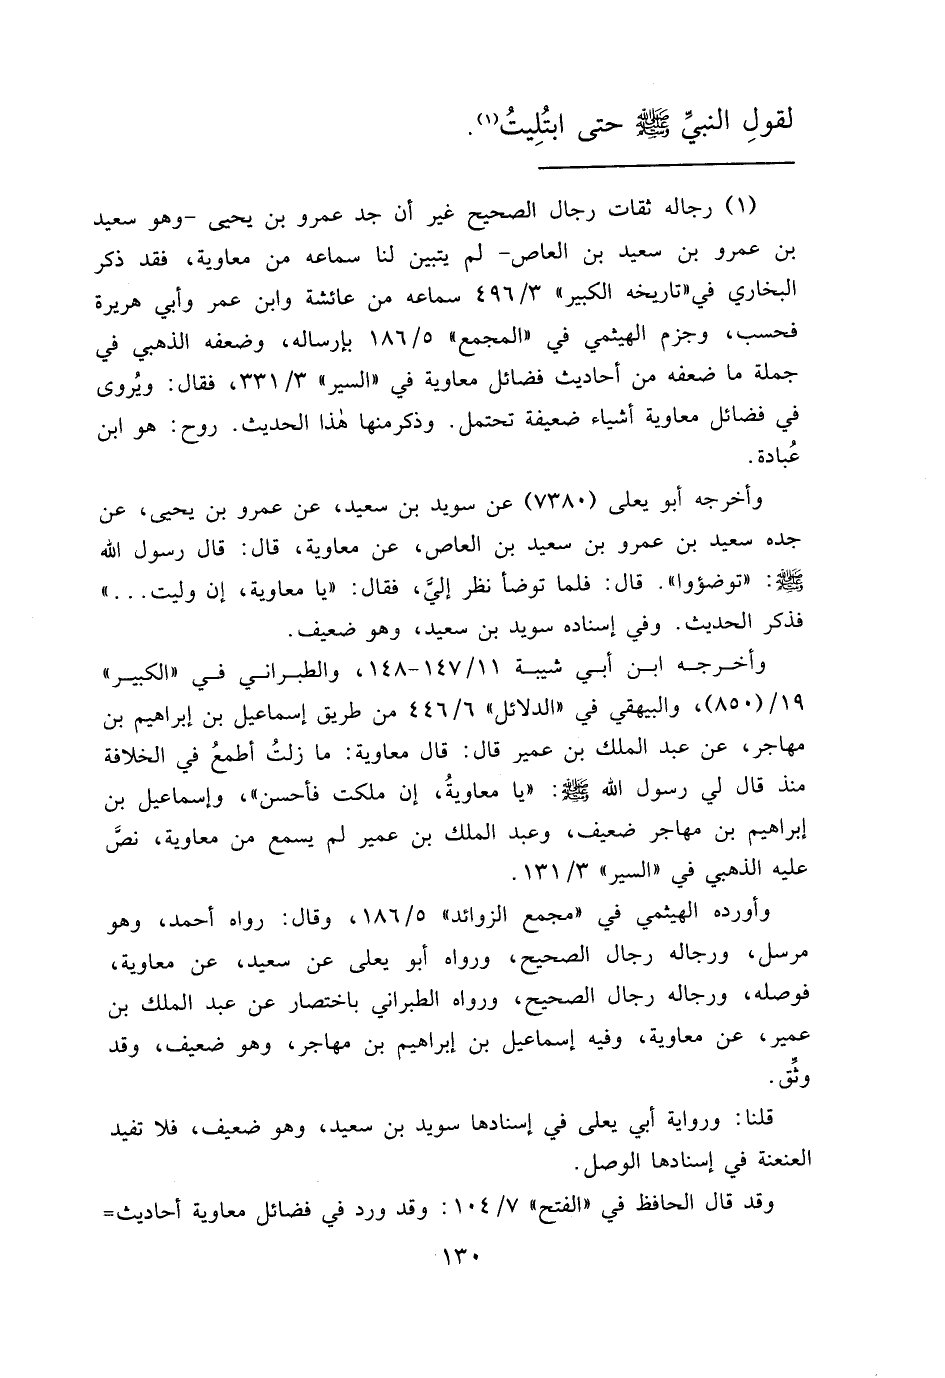 لقولِ النبيِّ ﷺ حتى ابتُلِيتُ(١).
(١) رجاله ثقات رجال الصحيح غير أن جد عمرو بن يحيى -وهو سعيد
بن عمرو بن سعيد بن العاص- لم يتبين لنا سماعه من معاوية، فقد ذكر
البخاري في«تاريخه الكبير» ٤٩٦/٣ سماعه من عائشة وابن عمر وأبي هريرة
فحسب، وجزم الهيثمي في «المجمع» ١٨٦/٥ بإرساله، وضعفه الذهبي في
جملة ما ضعفه من أحاديث فضائل معاوية في «السير» ٣٣١/٣، فقال: ويُروى
في فضائل معاوية أشياء ضعيفة تحتمل. وذكرمنها هٰذا الحديث. روح: هو ابن
عُبادة.
وأخرجه أبو يعلى (٧٣٨٠) عن سويد بن سعيد، عن عمرو بن يحيى، عن
جده سعيد بن عمرو بن سعيد بن العاص، عن معاوية، قال: قال رسول الله
ﷺ: «توضؤوا». قال: فلما توضأ نظر إليَّ، فقال: «يا معاوية، إن وليت...»
فذكر الحديث. وفي إسناده سويد بن سعيد، وهو ضعيف.
وأخرجه ابن أبي شيبة ١٤٧/١١-١٤٨، والطبراني في «الكبير»
١٩/(٨٥٠)، والبيهقي في «الدلائل» ٤٤٦/٦ من طريق إسماعيل بن إبراهيم بن
مهاجر، عن عبد الملك بن عمير قال: قال معاوية: ما زلتُ أطمعُ في الخلافة
منذ قال لي رسول الله ﷺ: «يا معاويةُ، إن ملكت فأحسن»، وإسماعيل بن
إبراهيم بن مهاجر ضعيف، وعبد الملك بن عمير لم يسمع من معاوية، نصَّ
عليه الذهبي في «السير» ١٣١/٣.
وأورده الهيثمي في «مجمع الزوائد» ١٨٦/٥، وقال: رواه أحمد، وهو
مرسل، ورجاله رجال الصحيح، ورواه أبو يعلى عن سعيد، عن معاوية،
فوصله، ورجاله رجال الصحيح، ورواه الطبراني باختصار عن عبد الملك بن
عمير، عن معاوية، وفيه إسماعيل بن إبراهيم بن مهاجر، وهو ضعيف، وقد
وثِّق.
قلنا: ورواية أبي يعلى في إسنادها سويد بن سعيد، وهو ضعيف، فلا تفيد
العنعنة في إسنادها الوصل.
وقد قال الحافظ في «الفتح» ١٠٤/٧: وقد ورد في فضائل معاوية أحاديث=
١٣٠